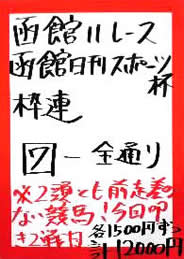 函館11レース
函館日刊スポーツ
杯
枠連
7-全通り
※2頭とも前走差
ない競馬!今回叩
き2戦目
各1500円ずつ
計12000円